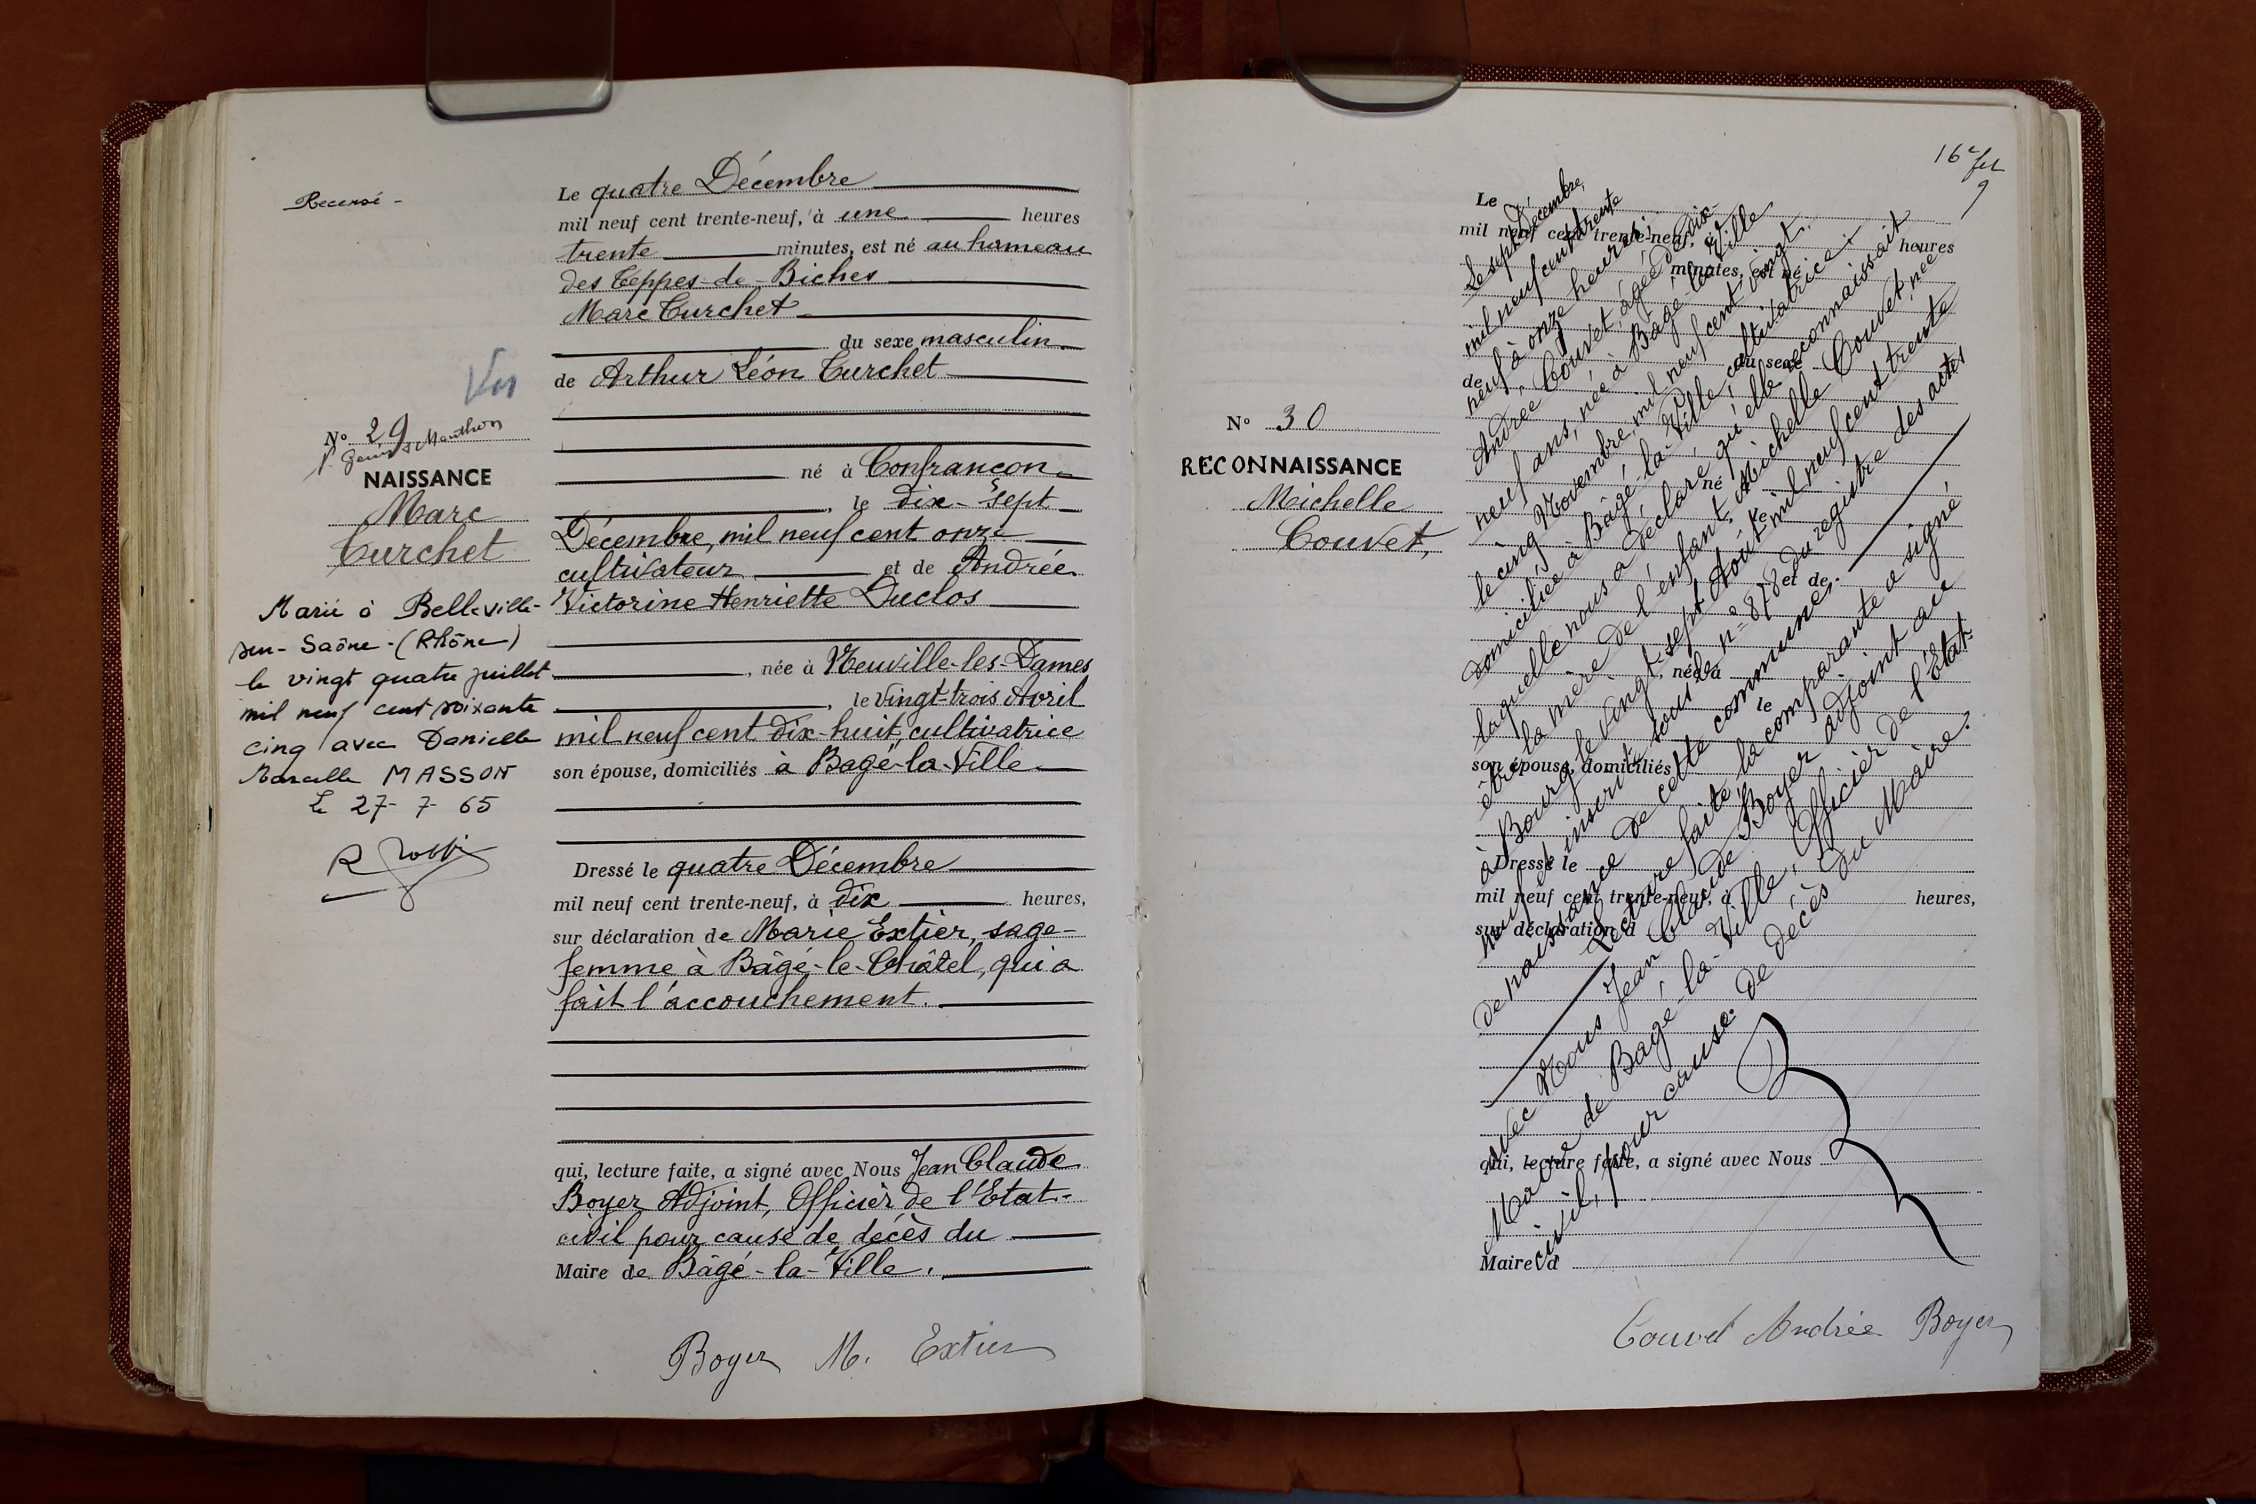 Recensé -
Vu
N° 29
St Genis s/ Menthon
NAISSANCE
Marc
Curchet
Marié à Belleville-
sur-Saône-(Rhône)
le vingt quatre juillet
mil neuf cent soixante
cinq avec Danielle
Marcelle MASSON
Le 27-7-65
Le quatre Décembre
mil neuf cent trente-neuf, à une heures
trente minutes, est né au hameau
des Teppes-de-Biches
Marc Curchet
du sexe masculin
de Arthur Léon Curchet
né à Confrançon
, le dix-sept
Décembre, mil neuf cent onze
cultivateur et de Andrée
Victorine Henriette Duclos
, née à Neuville-les-Dames
, le vingt-trois Avril
mil neuf cent dix-huit, cultivatrice
son épouse, domiciliés à Bagé-la-Ville
Dressé le quatre Décembre
mil neuf cent trente-neuf, à dix heures,
sur déclaration de Marie Extier, sage-
femme à Bâgé-le-Châtel, qui a
fait l'accouchement.
qui, lecture faite, a signé avec Nous Jean Claude
Boyer Adjoint, Officier de l'Etat-
civil pour cause de décès du
Maire de Bâgé-la-Ville.
Boyer M. Extier
16e fet
9
N° 30
RECONNAISSANCE
Michelle
Couvet,
Le
mil neuf cent trente-neuf, à heures
minutes, est né
du sexe
de
né à
le
et de
, née à
le
son épouse, domiciliés
Dressé le
mil neuf cent trente-neuf, à heures,
sur déclaration d
qui, lecture faite, a signé avec Nous
Maire d
Le sept Décembre,
mil neuf cent trente
neuf à onze heures,
Andrée Couvet, âgée de dix-
neuf ans, née à Bagé-la-Ville
le cinq Novembre, mil neuf cent vingt,
domiciliée à Bâgé-la-Ville, cultivatrice
laquelle nous a déclaré qu'elle reconnaissait
être la mère de l'enfant, Michelle Couvet, née
à Bourg le vingt-sept Août mil neuf cent trente
neuf, inscrite sous le n° 878 du registre des actes
de naissance de cette commune.
Lecture faite, la comparante a signé
avec Nous Jean Claude Boyer adjoint au
Maire de Bagé-la-Ville, Officier de l'Etat-
civil, pour cause de décès du Maire.
Couvet Andrée Boyer